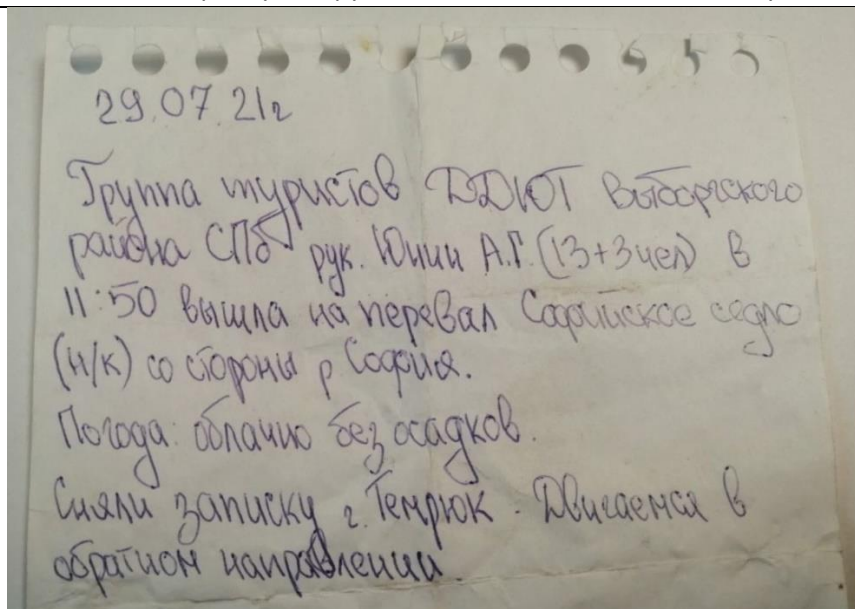 29.07.21г
Группа туристов ДДЮТ Выборгского
района СПб рук. Юнин А.Г. (13+3чел) в
11:50 вышла на перевал Софийское седло
(н/к) со стороны р София.
Погода: облачно без осадков.
Сняли записку г. Темрюк. Двигаемся в
обратном направлении.